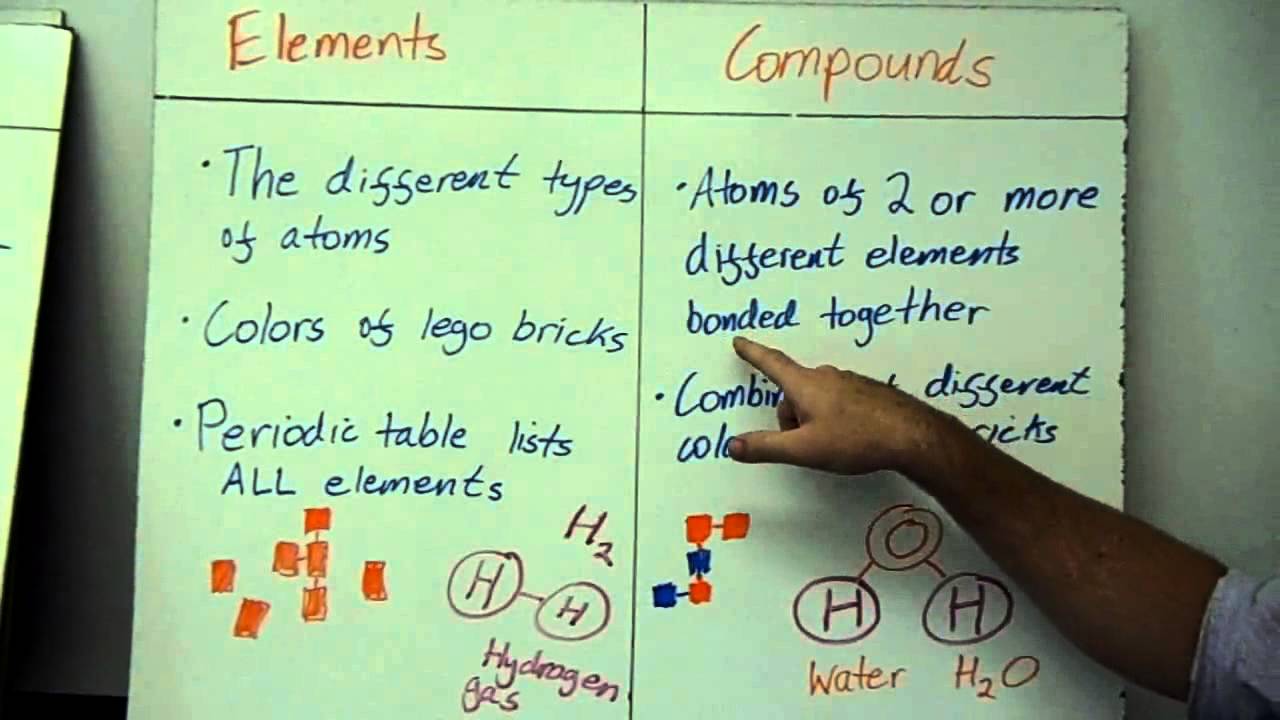 Elements
• The different types
of atoms
• Colors of lego bricks
• Periodic table lists
ALL elements
H2
H H
Hydrogen
gas
Compounds
• Atoms of 2 or more
different elements
bonded together
• different
O
H H
Water H2O